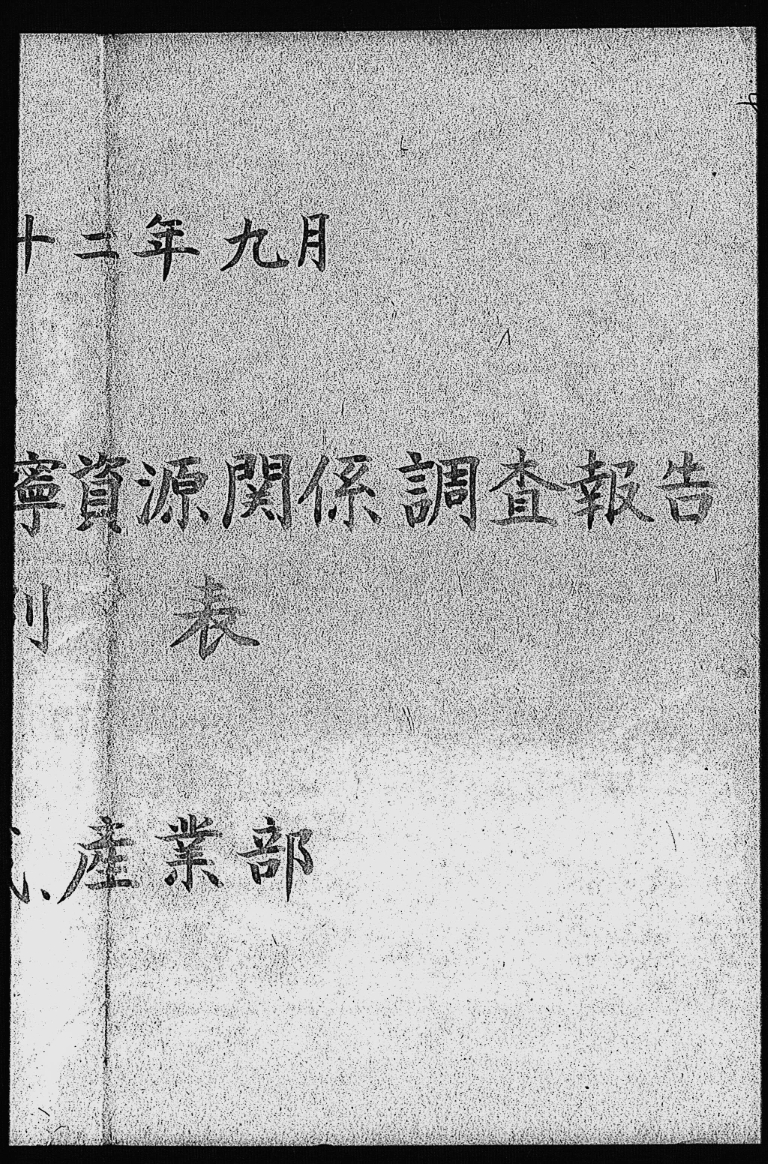 十二年九月
寧資源関係調査報告
表
産業部